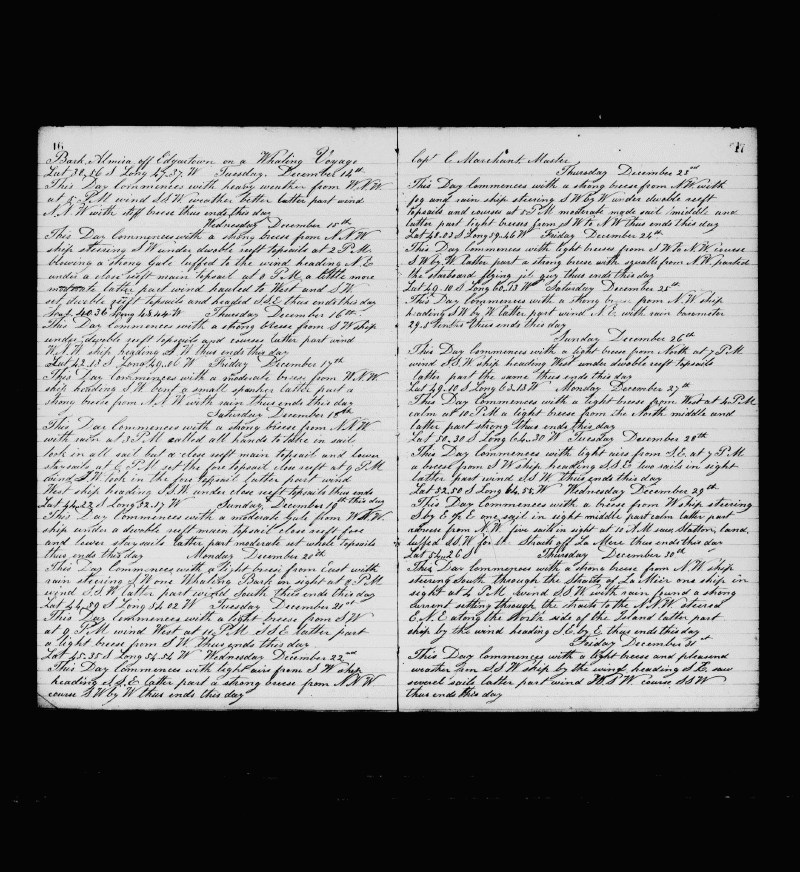 16
Bark Almira off Edgartown on a Whaling Voyage
Lat 38,56 S Long 47.37 W Tuesday, December 14th
This Day Commences with heavy weather from W.N.W
at 5 P.M wind S.S.W. weather better latter part wind
N.N.W with stiff breese thus ends this day
Wednesday December 15th
This Day Commences with a strong breese from N.N.W
ship steering S W under duble reeft topsails at 2 P.M.
blowing a strong Gale luffed to the wind heading N.E
under a close reeft main topsail at 8 P.M. a little more
moderate latter part wind hauled to West and S.W.
set duble reeft topsails and headed S.S.E thus ends this day
Lat 40.36 Long 48.44 W Thursday December 16th
This Day Commences with a strong breese from S W ship
under duble reeft topsails and courses latter part wind
W.N.W ship heading S.W thus ends this day
Lat 42.13 S Long 49.06 W Friday December 17th
This Day Commences with a moderate breese from W.N.W.
ship heading S.W bent a small spanker latter part a
strong breese from N.N.W with rain thus ends this day
Saturday December 18th
This Day Commences with a strong breese from N.N.W
with rain at 3 P.M called all hands to take in sail
took in all sail but a close reeft main topsail and lower
staysails at 6 P.M set the fore topsail close reeft at 9 P.M
wind S.W. took in the fore topsail latter part wind
West ship heading S.S.W. under close reeft topsails thus ends
Lat 44.22 S Long 52.37 W Sunday, December 19th this day
This Day Commences with a moderate Gale from W.N.W.
ship under a duble reeft main topsail close reeft fore
and lower staysails latter part moderate set whole topsails
thus ends this day Monday December 20th
This Day Commences with a light breese from East with
rain steering S.W one Whaling Bark in sight at 9 P.M
wind S.S.W. latter part wind South thus ends this day
Lat 44.59 S Long 54.02 W Tuesday December 21st
This Day Commences with a light breese from S W
at 9 P.M wind West at 11 P.M S S E latter part
a light breese from S.W. thus ends this day
Lat 45.35 S Long 54.54 W Wednesday December 22nd
This Day Commences with light airs from S W ship
heading S.S.E latter part a strong breese from N.N.W
course S.W by W thus ends this day
17
Capt C Marchant, Master
Thursday December 23rd
This Day Commences with a strong breese from N.W with
fog and rain ship steering S W by W under duble reeft
topsails and courses at 5 P.M moderate made sail middle and
latter part light breeses from S W to N.W thus ends this day
Lat 47.53 S Long 59.46 W Friday December 24th
This Day Commences with light breeses from S W to N.W course
S W by W latter part a strong breese with squalls from N.W. parted
the starboard flying jib guy thus ends this day
Lat 49.10 S Long 60.13 W Saturday December 25th
This Day Commences with a strong breese from N.W ship
heading S.W by W latter part wind N.E. with rain barometer
29.5 tenths thus ends this day
Sunday December 26th
This Day Commences with a light breese from North at 7 P.M
wind S.S.W ship heading West under duble reeft topsails
latter part the same thus ends this day
Lat 49.10 S Long 63.13 W Monday December 27th
This Day Commences with a light breese from West at 4 P.M.
calm at 10 P.M a light breese from the North middle and
latter part strong thus ends this day
Lat 50.30 S Long 64.30 W Tuesday December 28th
This Day Commences with light airs from S.E. at 7 P.M
a breese from S W ship heading S.S.E two sails in sight
latter part wind S.S W. thus ends this day
Lat 52.50 S Long 64.58 W Wednesday December 29th
This Day Commences with a breese from W ship steering
S by E ½ E one sail in sight middle part calm latter part
from N.W five sails in sight at 10 A.M saw Statton land
luffed S.S.W. for the Straits off La Mere thus ends this day
Lat 54.26 S Thursday December 30th
This Day Commences with a strong breese from N.W ship
steering South through the Straits of La Meir one ship in
sight at 4 P.M. wind S.S.W with rain found a strong
current setting through the straits to the N.N.W steered
E.N.E along the North side of the Island latter part
ship by the wind heading S.E. by E thus ends this day
Friday December 31st
This Day Commences with a light breese and pleasend
weather from S.S.W ship by the wind heading S.E. saw
several sails latter part wind W.S.W. course S.S.W
thus ends this day